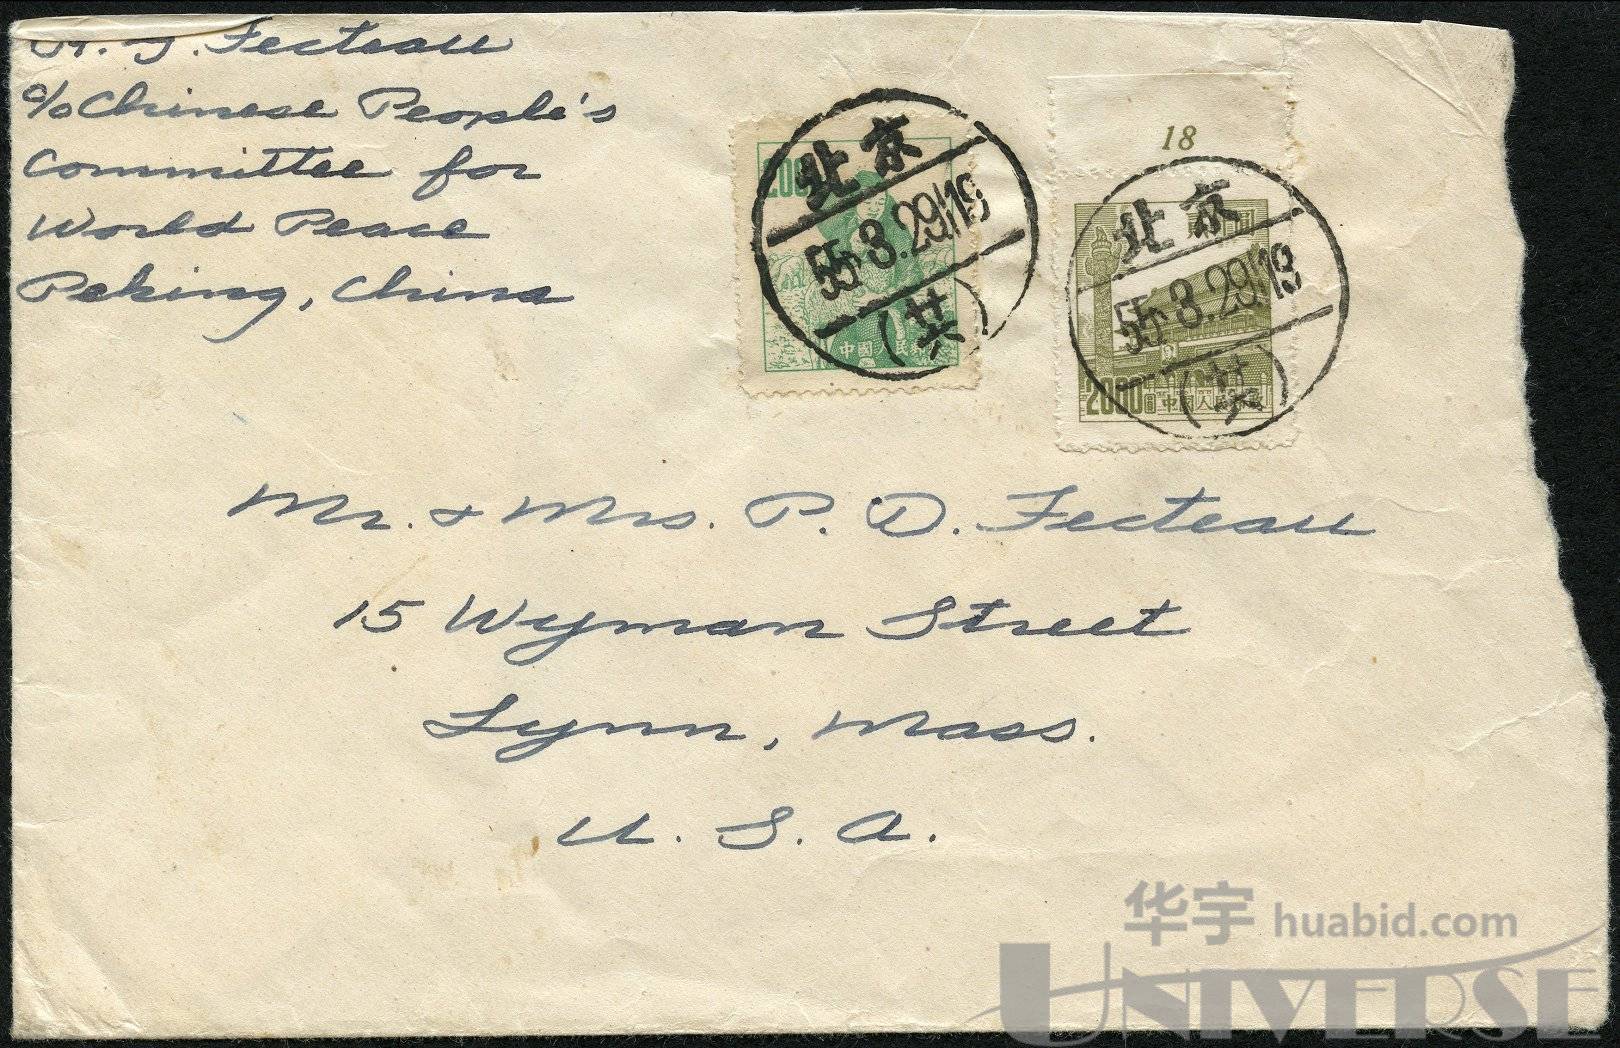 R. G. Fecteau
c/o Chinese People's
Committee for
World Peace
Peking, China
200
中國人民
北京
55.3.29.19
(廿)
18
北京
55.3.29.19
(廿)
2000
中國人民
Mr. & Mrs. P. D. Fecteau
15 Wyman Street
Lynn, Mass.
U. S. A.
华宇 huabid.com
UNIVERSE